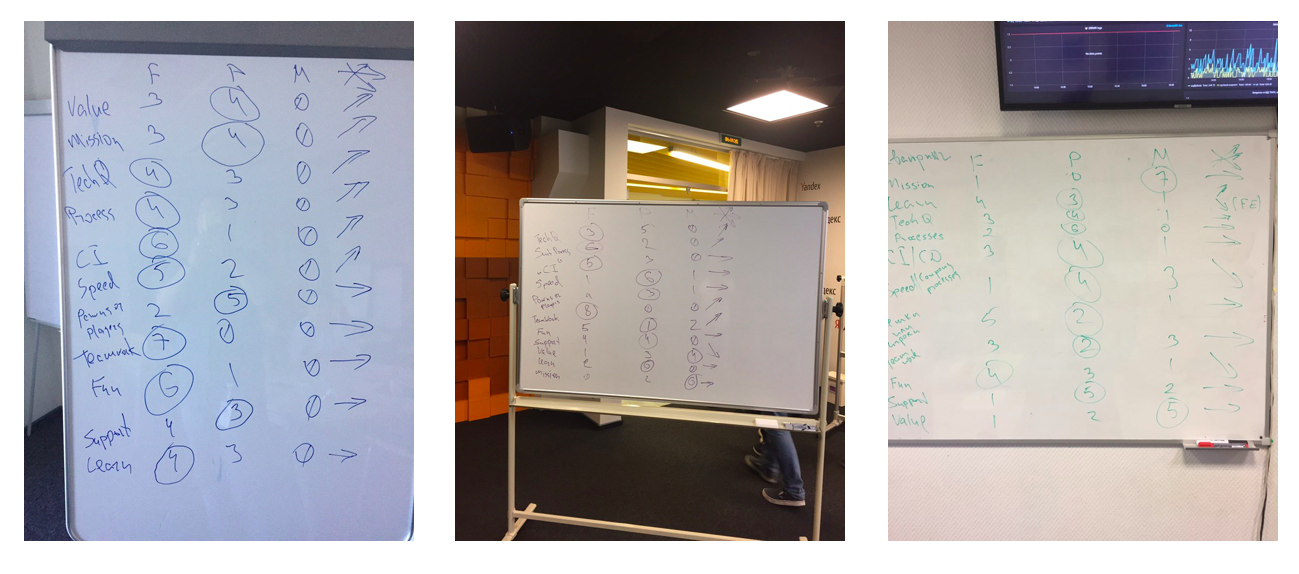 F P M
Value 3 4 0
Mission 3 4 0
TechQ 4 3 0
Process 4 3 0
CI 6 1 0
Speed 5 2 0
Pawns or players 2 5 0
Teamwork 7 0 0
Fun 6 1 0
Support 4 3 0
Learn 4 3 0
Yandex
F M
TechQ 3 5 0
6 2 0
CI 5 3 0
Speed 1 6 1
Pawns or players 4 3 1
Teamwork 8 0 0
Fun 5 1 2
Support 4 4 0
Value 1 3 4
Learn 2 0
Mission 0 2
F P M
Mission 1 0 7
Learn 4 3 1 (FE)
TechQ 3 4 1
Processes 2 6 0
CI/CD 3 4 1
Speed/ processes 1 4 3
5 2 1
3 2 3
4 3 1
Fun 1 5 2
Support
Value 1 2 5